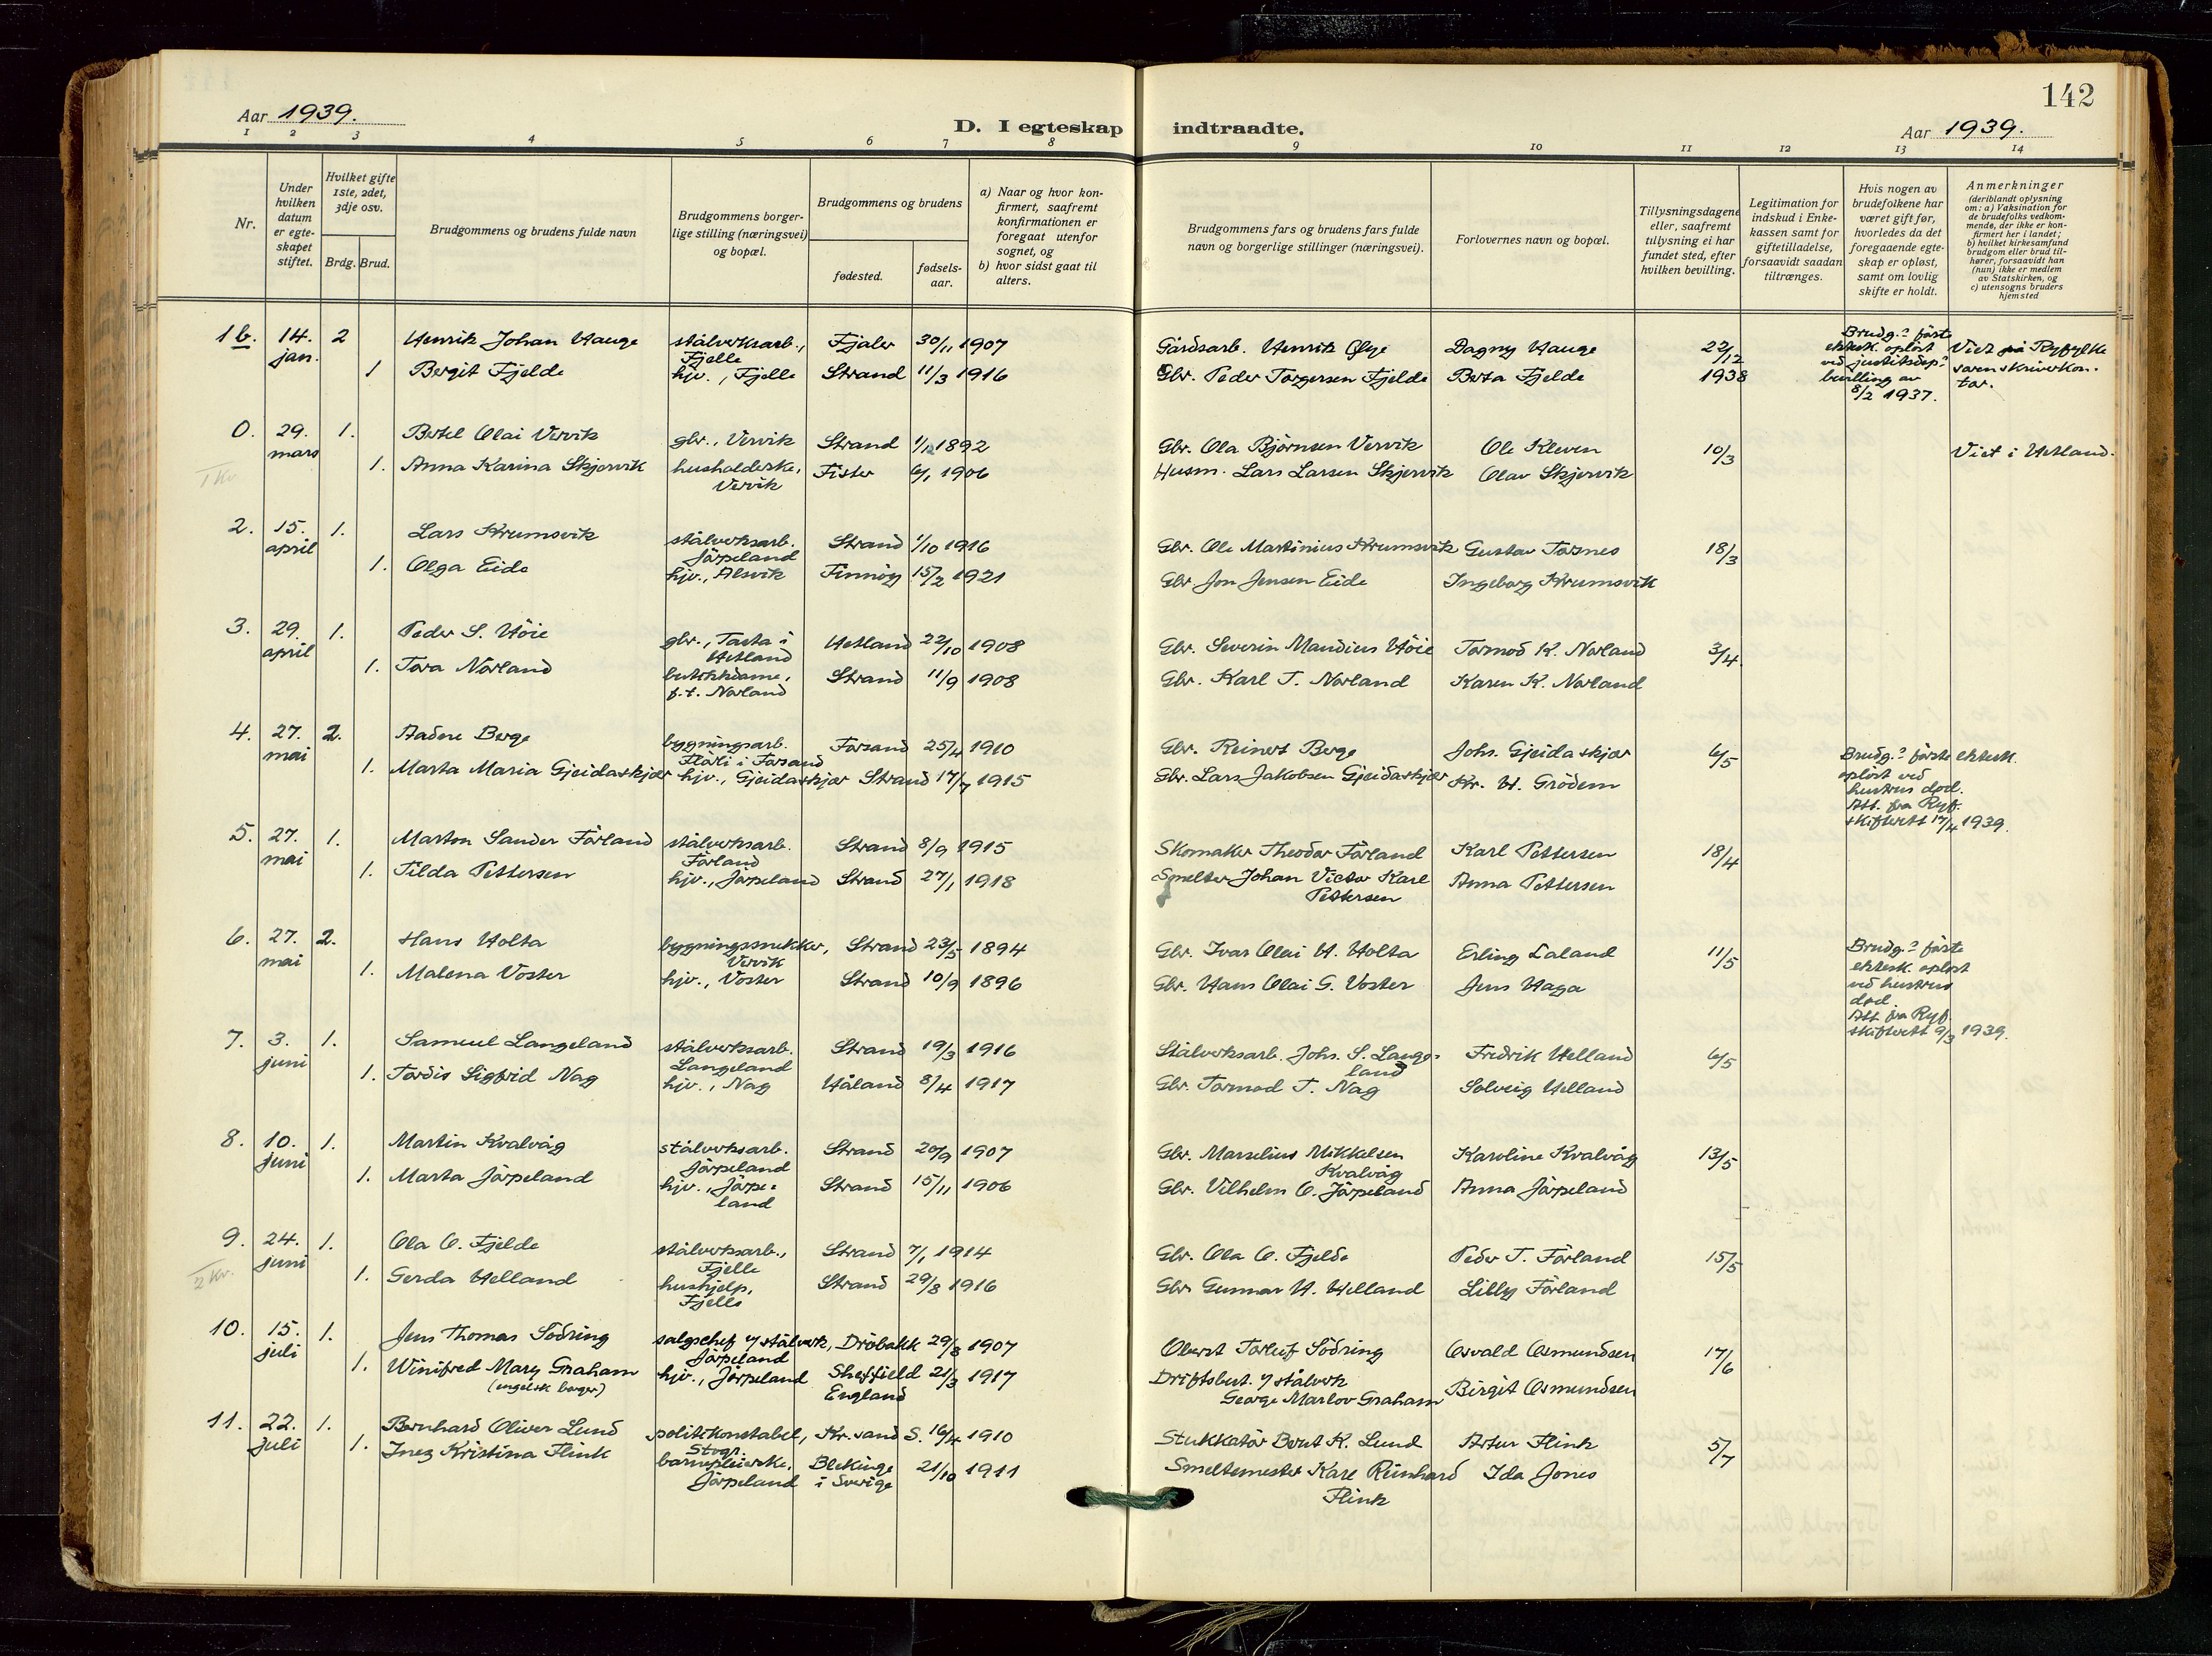 142
Aar 1939.
D. I egteskap indtraadte.
Aar 1939.
1 2 3 4 5 6 7 8 9 10 11 12 13 14
Nr.
Under hvilken datum er egteskapet stiftet.
Hvilket gifte 1ste, 2det, 3dje osv.
Brdg. Brud.
Brudgommens og brudens fulde navn
Brudgommens borgerlige stilling (næringsvei) og bopæl.
Brudgommens og brudens
fødested.
fødselsaar.
a) Naar og hvor konfirmert, saafremt konfirmationen er foregaat utenfor sognet, og
b) hvor sidst gaat til alters.
Brudgommens fars og brudens fars fulde navn og borgerlige stillinger (næringsvei).
Forlovernes navn og bopæl.
Tillysningsdagene eller, saafremt tillysning ei har fundet sted, efter hvilken bevilling.
Legitimation for indskud i Enkekassen samt for giftetilladelse, forsaavidt saadan tiltrænges.
Hvis nogen av brudefolkene har været gift før, hvorledes da det foregaaende egteskap er opløst, samt om lovlig skifte er holdt.
Anmerkninger (deriblandt oplysning om: a) Vaksination for de brudefolks vedkommende, der ikke er konfirmert her i landet; b) hvilket kirkesamfund brudgom eller brud tilhører, forsaavidt han (hun) ikke er medlem av Statskirken, og c) utensogns bruders hjemsted
1 b. 14. jan. 2 Henrik Johan Hauge stålverksarb., Fjelle Fjaler 30/11 1907 Gårdsarb. Henrik Øye Dagny Hauge 22/12 1938 Brudg.s förste ektesk. oplöst ved justitsdep.s bevilling av 8/2 1937. Viet på Ryfylke sorenskriverkontor.
1 Bergit Fjelde hjv., Fjelle Strand 11/3 1916 Gbr. Peder Torgersen Fjelde Berta Fjelde
0. 29. mars 1. Bertel Olai Vervik gbr., Vervik Strand 1892 Gbr. Ola Björnsen Vervik Ole Kleven 10/3 Viet i Hetland.
1 Kv.
1. Anna Karina Skjervik husholderske, Vervik Fister 6/1 1906 Husm. Lars Larsen Skjervik Olav Skjervik
2. 15. april 1. Lars Krumsvik stålverksarb. Jörpeland Strand 1/10 1916 Gbr. Ole Martinius Krumsvik Gustav Tornes 18/3
1. Olga Eide hjv., Alsvik Finnöy 15/2 1921 Gbr Jon Jensen Eide Ingeborg Krumsvik
3. 29. april 1. Peder S. Höie gbr., Tasta i Hetland Hetland 22/10 1908 Gbr. Severin Mandius Höie Tormod K. Norland 3/4
1. Tora Nörland butikkdame, p.t. Norland Strand 11/9 1908 Gbr. Karl T. Norland Karen K. Norland
4. 27. mai 2. Aadne Berge bygningsarb. Flörli i Forsand Forsand 25/4 1910 Gbr. Reinert Berge Johs. Gjeidaskjær 6/5 Brudg.s förste ektesk. oplöst ved hustrus död. Att. fra Ryf. skifterett 17/4 1939.
1. Marta Maria Gjeidaskjær hjv., Gjeidaskjær Strand 17/7 1915 Gbr. Lars Jakobsen Gjeidaskjær Kr. H. Grödem
5. 27. mai 1. Marton Sander Förland stålverksarb. Förland Strand 8/9 1915 Skomaker Theodor Förland Karl Pettersen 18/4
1. Tilda Pettersen hjv., Jörpeland Strand 27/1 1918 Smelter Johan Victor Karl Pettersen Anna Pettersen
6. 27. mai 2. Hans Holta bygningssnekker, Vervik Strand 23/5 1894 Gbr. Ivar Olai H. Holta Erling Laland 11/5 Brudg.s förste ektesk. oplöst ved hustrus död. Att. fra Ryf. skifterett 9/3 1939.
1. Malena Voster hjv., Voster Strand 10/9 1896 Gbr. Hans Olai G. Voster Jens Haga
7. 3. juni 1. Samuel Langeland stålverksarb. Langeland Strand 19/3 1916 Stålverksarb. Johs. S. Langeland Fredrik Helland 6/5
1. Tordis Sigfrid Nag hjv., Nag Håland 8/4 1917 Gbr. Tormod T. Nag Solveig Helland
8. 10. juni 1. Martin Kvalvåg stålverksarb. Jörpeland Strand 20/9 1907 Gbr. Marselius Mikkelsen Kvalvåg Karoline Kvalvåg 13/5
1. Marta Jörpeland hjv., Jörpeland Strand 15/11 1906 Gbr. Vilhelm O. Jörpeland Anna Jörpeland
9. 24. juni 1. Ola O. Fjelde stålverksarb., Fjelle Strand 7/1 1914 Gbr. Ola O. Fjelde Peder T. Förland 15/5
2 Kv.
1. Gerda Helland hushjelp, Fjelle Strand 29/8 1916 Gbr. Gunnar H. Helland Lilly Förland
10. 15. juli 1. Jens Thomas Södring salgschef v/ stålverk, Jörpeland Dröbakk 29/8 1907 Oberst Torleif Södring Osvald Osmundsen 17/6
1. Winifred Mary Graham (engelsk borger) hjv., Jörpeland Sheffield England 21/3 1917 Driftsbest. v/ stålverk George Marlov Graham Birgit Osmundsen
11. 22. juli 1. Bernhard Oliver Lund politikonstabel, Kr.sand S. 16/4 1910 Stukkatör Bernt K. Lund Artur Flink 5/7
1. Inez Kristina Flink barnepleierske, Jörpeland Blekinge i Sverige 21/10 1911 Smeltemester Karl Reinhard Flink Ida Jones